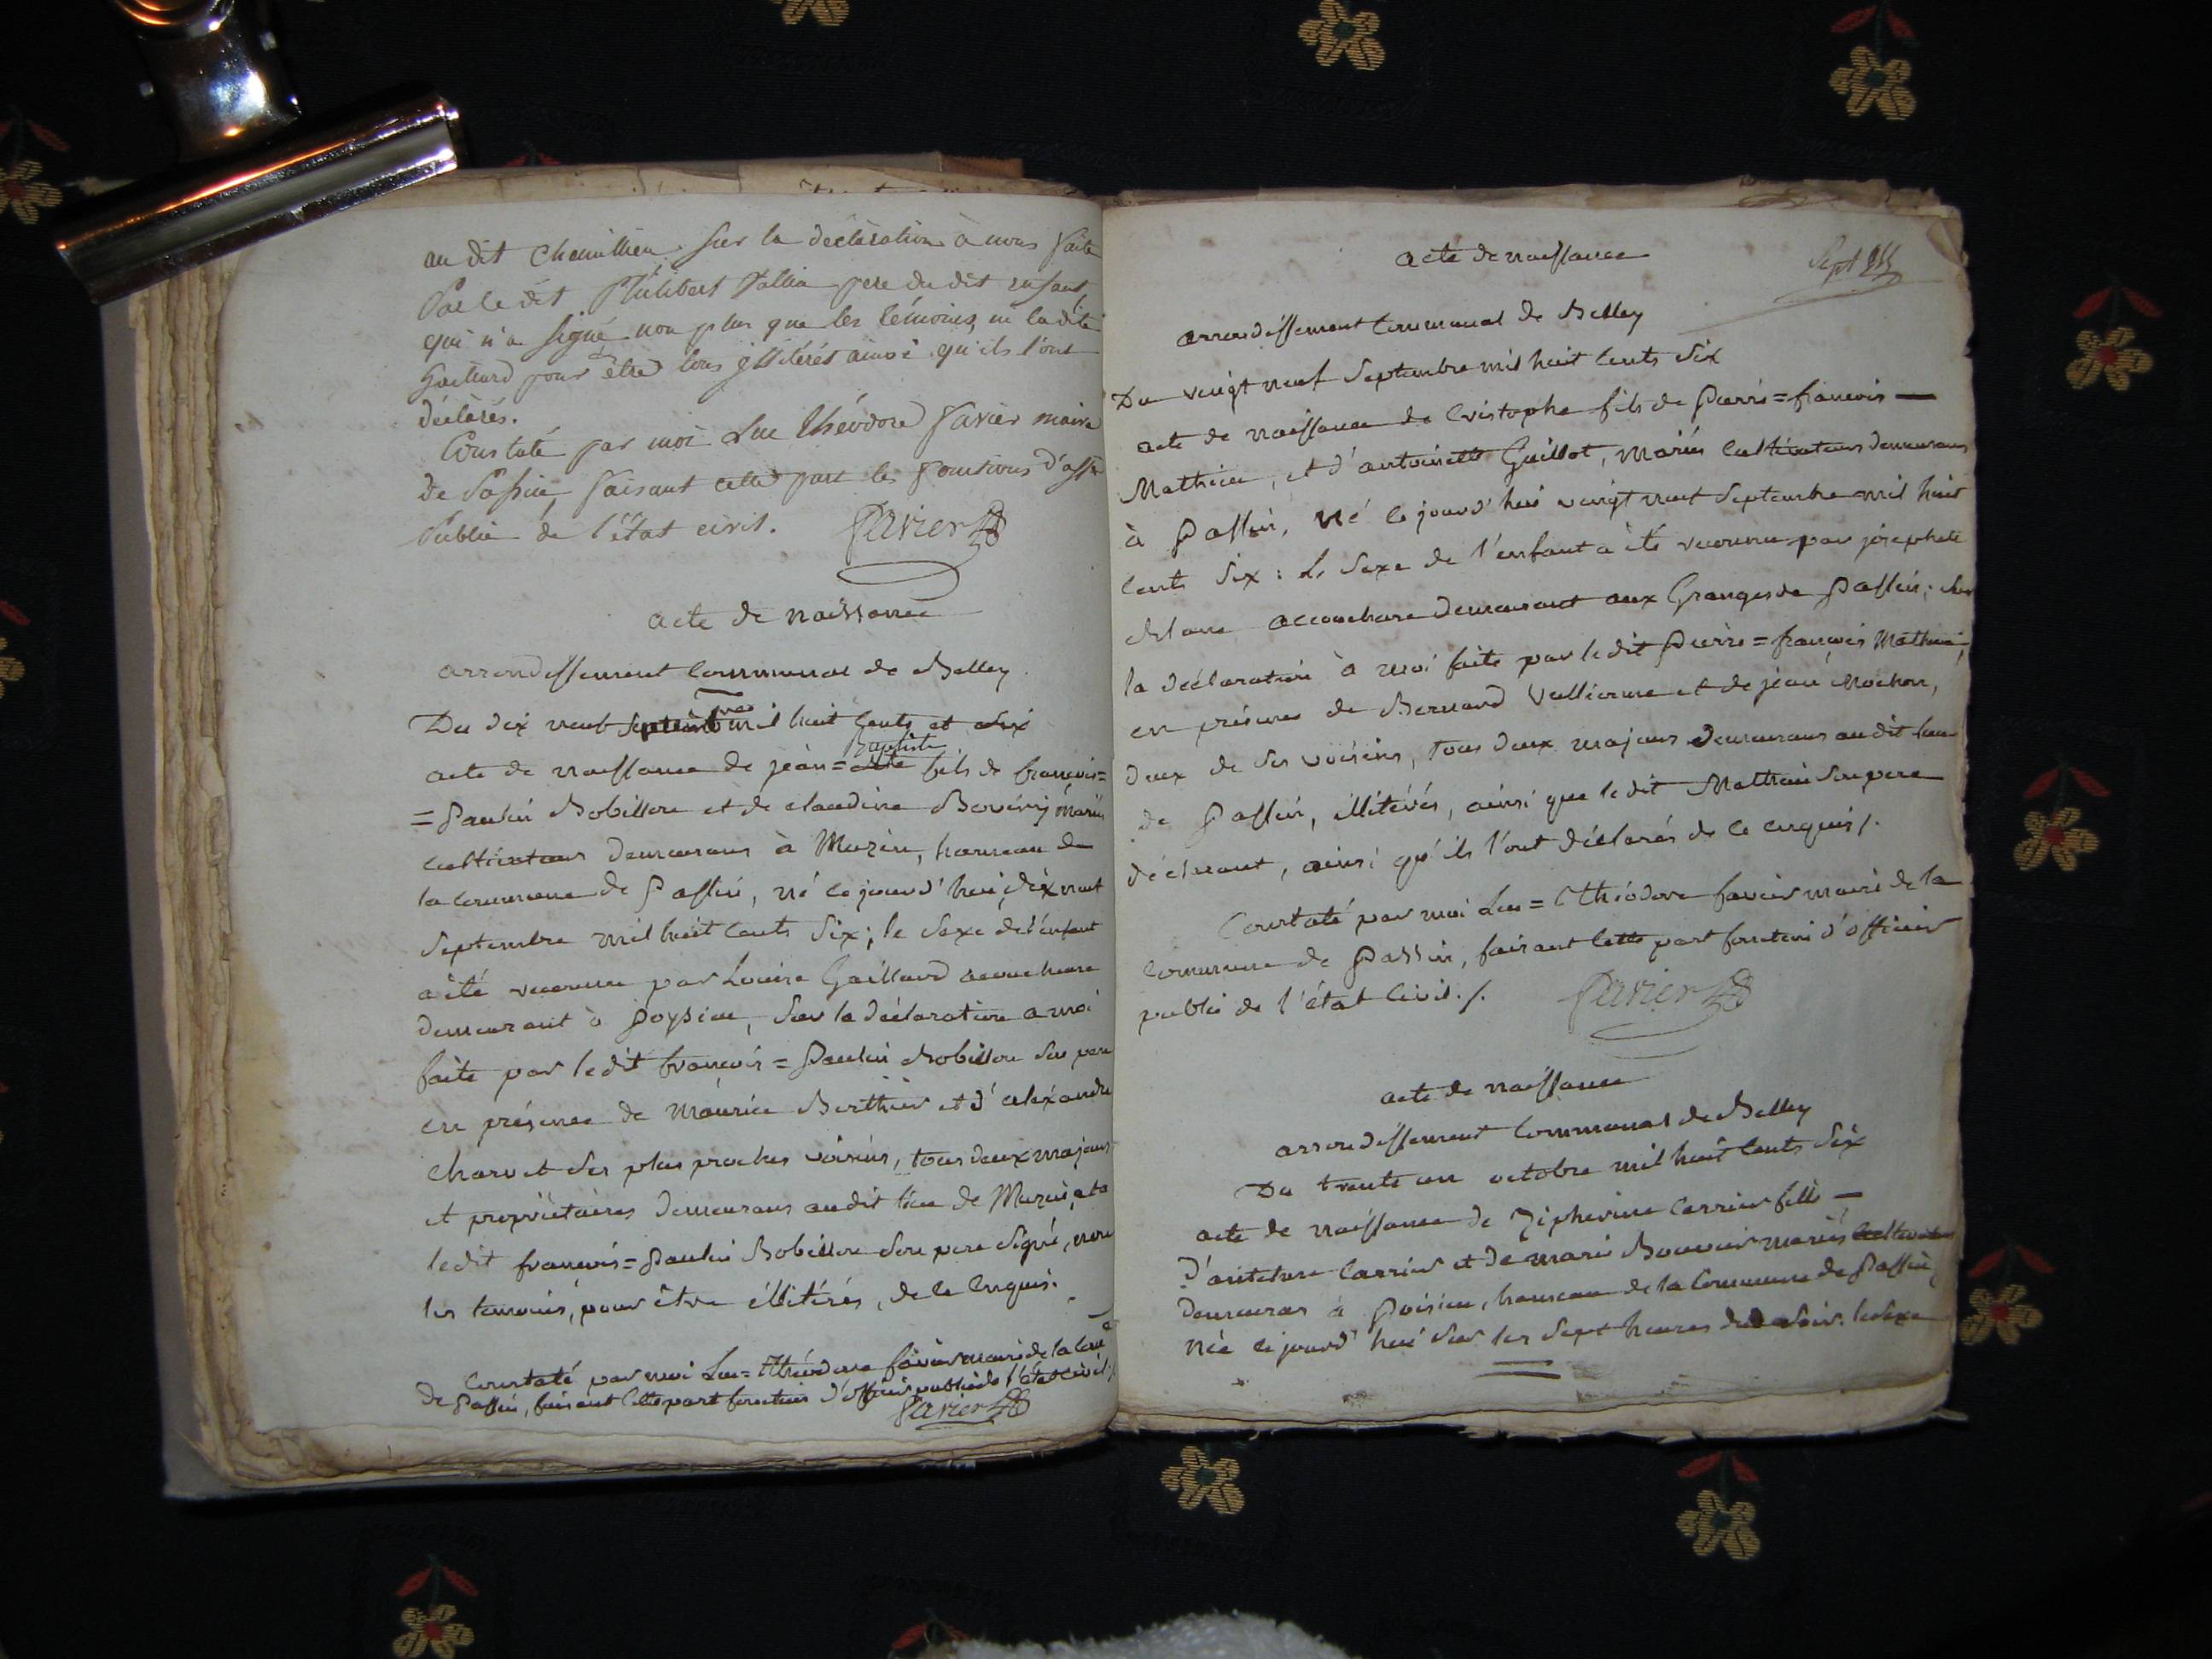 au dit Chemillieu. Sur la déclaration à nous faite
Par le dit Philibert Vallin pere du dit enfant,
qui n'a signé non plus que les témoins, ni ladite
Gaillard pour être tous illitérés ainsi qu'ils l'ont
déclarés.
Constaté par moi Luc Théodore Favier maire
de Passin, faisant cette part les fonctions d'offr
Public de l'État civil. Favier
acte de naissance
arrondissement Communal de Belley.
Du dix neuf septembre mil huit Cents et Six
acte de naissance de jean = Baptiste fils de françois =
= Paulin Bobillon et de claudine mariés
cultivateurs demeurans à Muzin, hameau de
la Commune de Passin, né ce jourd'hui, dix neuf
Septembre mil huit Cents Six; le Sexe de l'enfant
a été reconnu par Louise Gaillard accoucheuse
demeurant à Poysieu, Sur la déclaration a moi
faite par ledit françois = Paulin Bobillon son pere
en présence de Maurice Berthier et d'alexandre
charvet ses plus proches voisins, tous deux majeurs
et propriétaires demeurans audit lieu de Muzin, et a
ledit françois = Paulin Bobillon son pere Signé, non
les temoins, pour être illitérés, de ce Enquis.
Constaté par moi Luc = Théodore favier maire de la Comne
de Passin, faisant Cette part fonction d'officier public de l'état civil
Favier
acte de naissance
Sept
arrondissement Communal de Belley
Du vingt neuf Septembre mil huit Cents Six
acte de naissance de Cristophe fils de Pierre = françois
Mathieu, et d'antoinette Guillot, Mariés Cultivateurs demeurans
à Passin, né ce jourd'hui vingt neuf Septembre mil huit
Cents Six : Le Sexe de l'enfant a été reconnu par josephete
accoucheuse demeurant aux Granges de Passin; sur
la déclaration à moi faite par ledit Pierre = françois Mathieu,
en présence de Bernard Vullierme et de jean Mochon,
deux de Ses voisins, tous deux majeurs demeurans audit lieu
de Passin, illitérés, ainsi que le dit Mathieu Son pere
déclarant, ainsi qu'ils l'ont déclarés de ce enquis /.
Constaté par moi Luc = Théodore favier maire de la
Commune de Passin, faisant Cette part fonction d'officier
public de l'état Civil. /. Favier
acte de naissance
arrondissement Communal de Belley
Du trente un octobre mil huit Cents Six
acte de naissance de Zipherine Carrier fille
d'antelme Carrier et de marie Bouvier mariés Cultivateurs
demeurans à Poisieu, hameau de la Commune de Passin,
née ce jourd'hui Sur les Sept heures du Soir. le Sexe